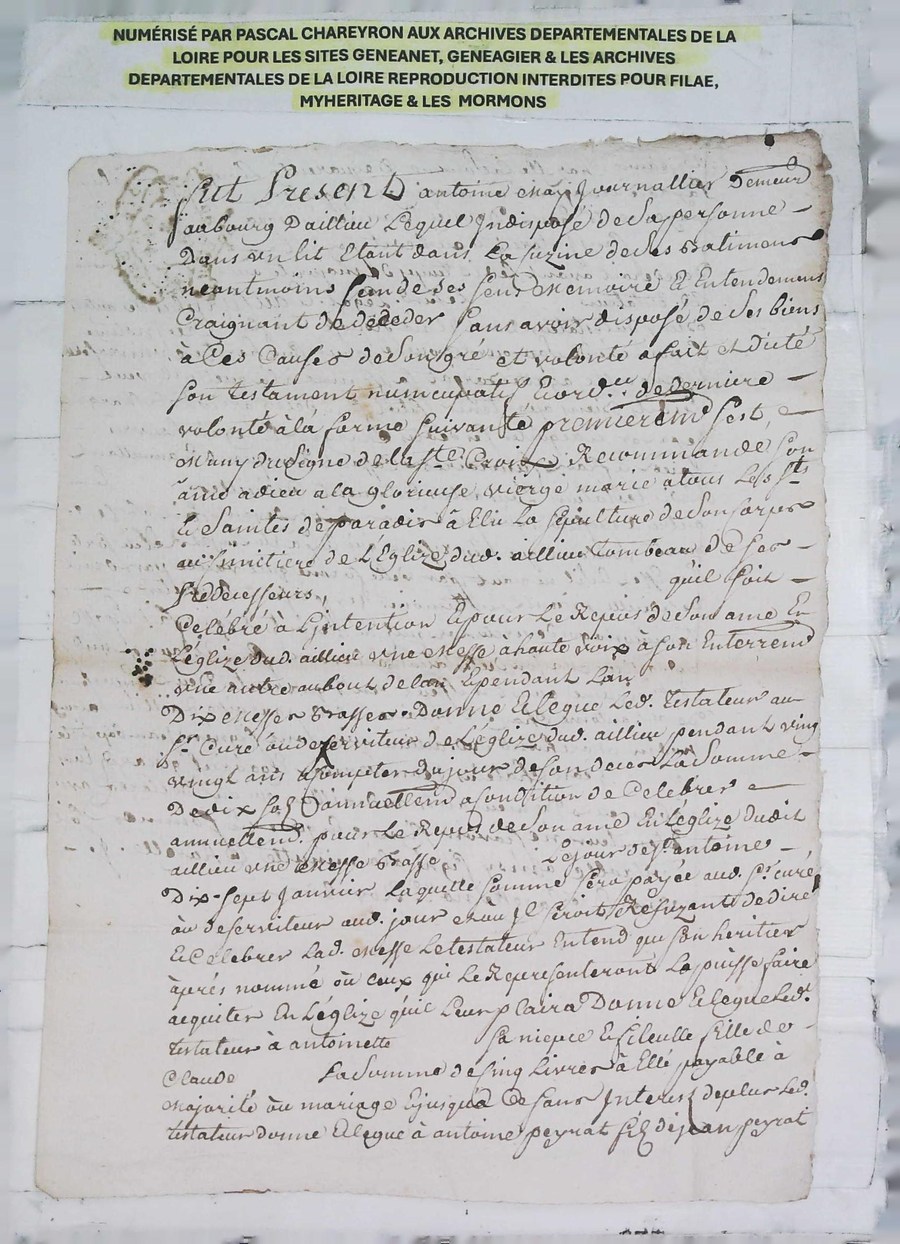 NUMÉRISÉ PAR PASCAL CHAREYRON AUX ARCHIVES DEPARTEMENTALES DE LA
LOIRE POUR LES SITES GENEANET, GENEAGIER & LES ARCHIVES
DEPARTEMENTALES DE LA LOIRE REPRODUCTION INTERDITES POUR FILAE,
MYHERITAGE & LES MORMONS
fut Present antoine Journallier Demeurt
faubourg Daillieu Lequel Indisposé de Sa personne
Dans un lit Etant dans La de Ses Batimens
neantmoins Sain de Ses Sens Memoire & Entendemens
Craignant de deceder Sans avoir disposé de Ses biens
à Ces Causes de Son gré et volonté a fait et dicté
Son testament nuncupatif de derniere
volonté à la forme Suivante premieremt Sest
muny du Signe de la Ste Croix Recommandé Son
ame a dieu a la glorieuse vierge marie a tous Les Sts
& Saintes de paradis à Elu La Sepulture de Son Corps
au Simitiere de L'Eglize dud. aillieu tombeau de Ses
Predecesseurs, qu'il Soit
Celébré à L'intention & pour Le Repos de Son ame En
L'églize dud. aillieu une Messe à haute voix à Son Enterremt
une autre au bout de lan & pendant Lan
Dix Messes Basses. Donne & legue Led. Testateur au
Sr Curé ou deserviteur de L'églize dud. aillieu pendant ving
vingt ans a Compter du jour de Son deces La Somme
De dix Sols annuellemt a Condition de Celebrer
annuellemt pour Le Repos de Son ame En L'églize dudit
aillieu une Messe Basse Le jour de St. antoine
Dix-Sept Janvier Laquelle Somme Sera payée aud. Sr. Curé
ou deserviteur aud. jour & ou Il Seroit Refuzant de dire
& Celebrer Lad. Messe Le testateur Entend que Son heritier
après nommé ou Ceux qui Le Representeront La puisse faire
acquiter En L'églize qu'il Leur plaira Donne & legue Led.
testateur à antoinette Sa niepce & filleulle fille de
Claude La Somme de Cinq Livres à Elle payable à
Majorité ou mariage & jusqua Ce Sans Interest de plus Led.
testateur donne & legue à antoine peyrat fils de jean peyrat